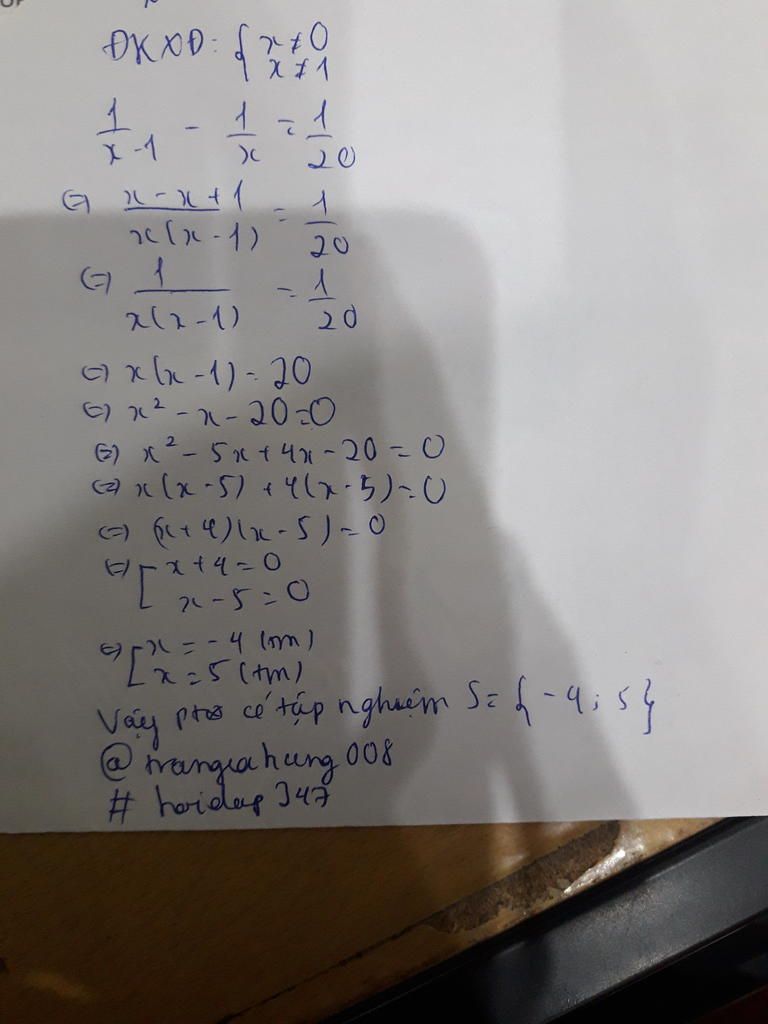 ĐKXĐ: { x ≠ 0
x ≠ 1
1/(x-1) - 1/x = 1/20
(=) (x-x+1)/(x(x-1)) = 1/20
(=) 1/(x(x-1)) = 1/20
(=) x(x-1) = 20
(=) x² - x - 20 = 0
(=) x² - 5x + 4x - 20 = 0
(=) x(x-5) + 4(x-5) = 0
(=) (x+4)(x-5) = 0
(=) [ x+4 = 0
x-5 = 0
(=) [ x = -4 (tm)
x = 5 (tm)
Vậy ptr có tập nghiệm S = { -4; 5 }
@trangiahung008
# hoidap347